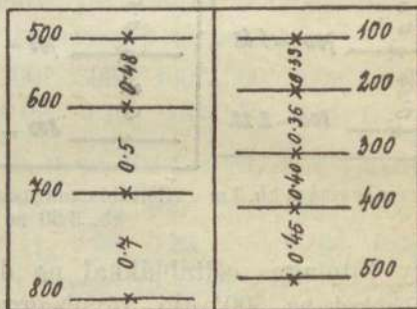 500
0.48
600
0.5
700
0.7
800
100
0.33
200
0.36
300
0.40
400
0.45
500